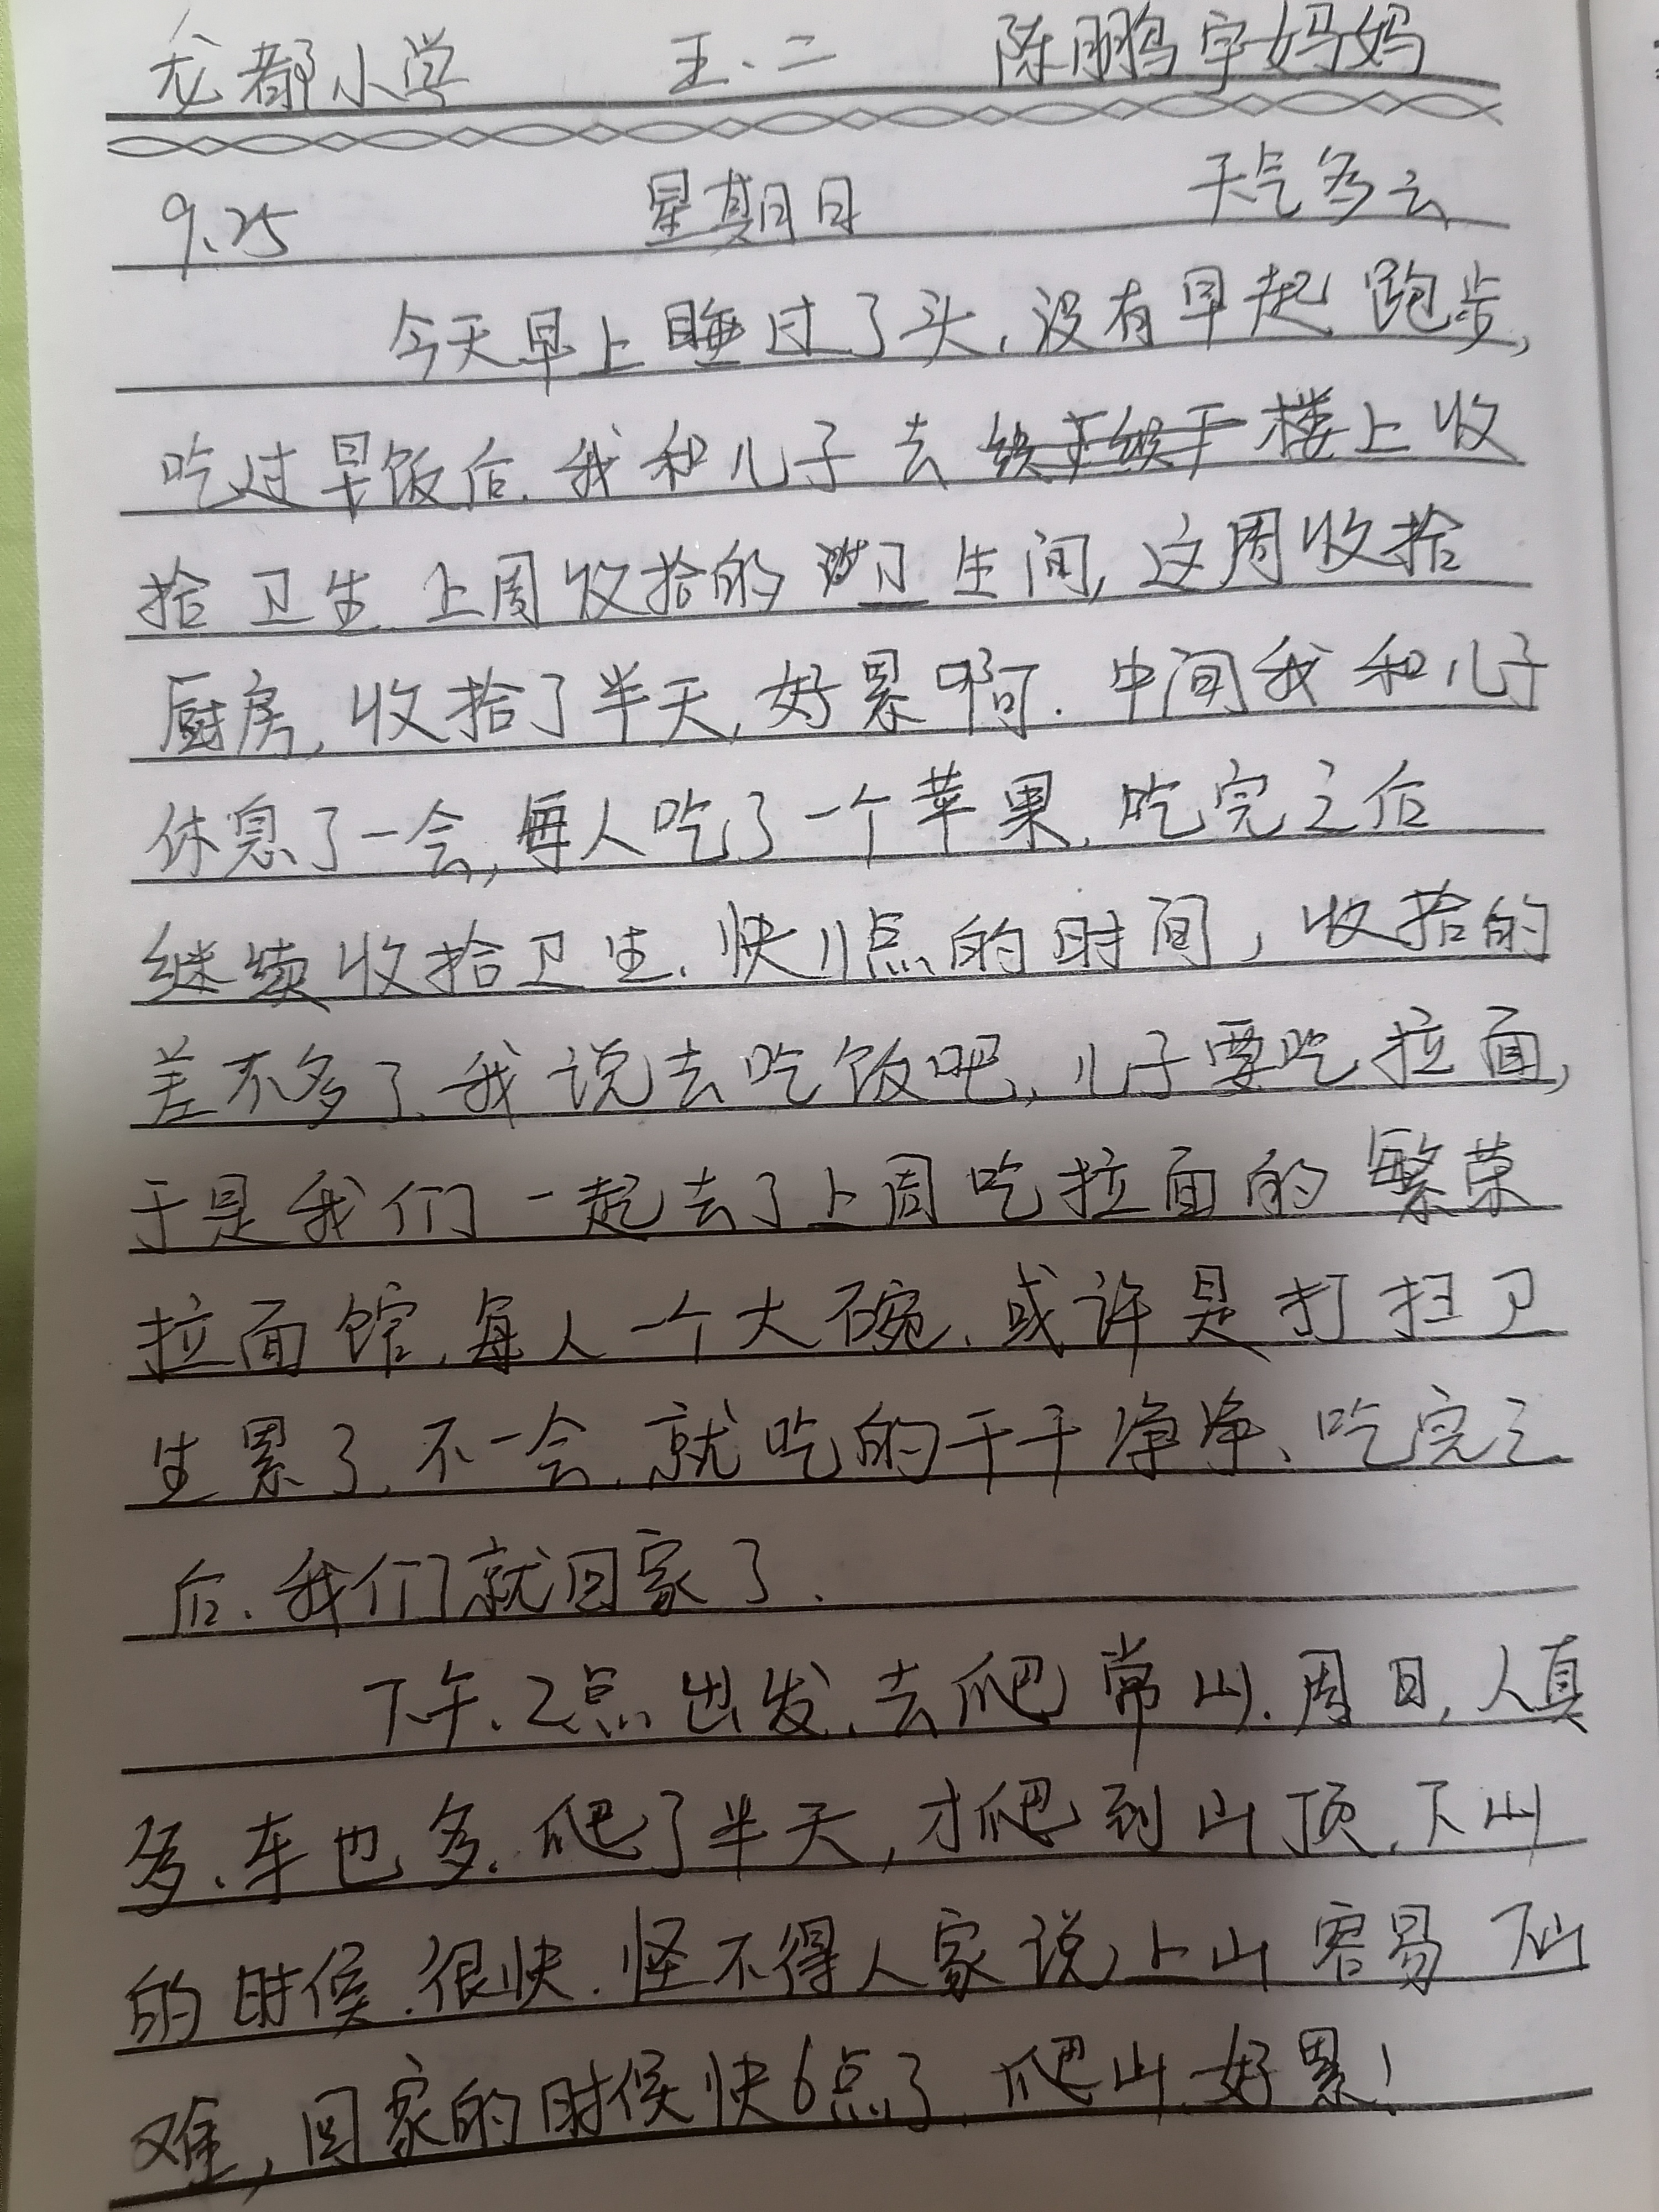 龙都小学 王、二 陈鹏宇妈妈
9.25 星期日 天气多云
今天早上睡过了头,没有早起跑步,
吃过早饭后.我和儿子去楼上收
拾卫生.上周收拾的卫生间,这周收拾
厨房,收拾了半天,好累啊.中间我和儿子
休息了一会,每人吃了一个苹果.吃完之后
继续收拾卫生.快11点的时间,收拾的
差不多了.我说去吃饭吧,儿子要吃拉面,
于是我们一起去了上周吃拉面的繁荣
拉面馆.每人一个大碗.或许是打扫卫
生累了.不一会.就吃的干干净净、吃完之
后.我们就回家了.
下午.2点出发.去爬常山.周日,人真
多.车也多.爬了半天,才爬到山顶.下山
的时候.很快.怪不得人家说上山容易下山
难,回家的时候快6点了.爬山.好累!